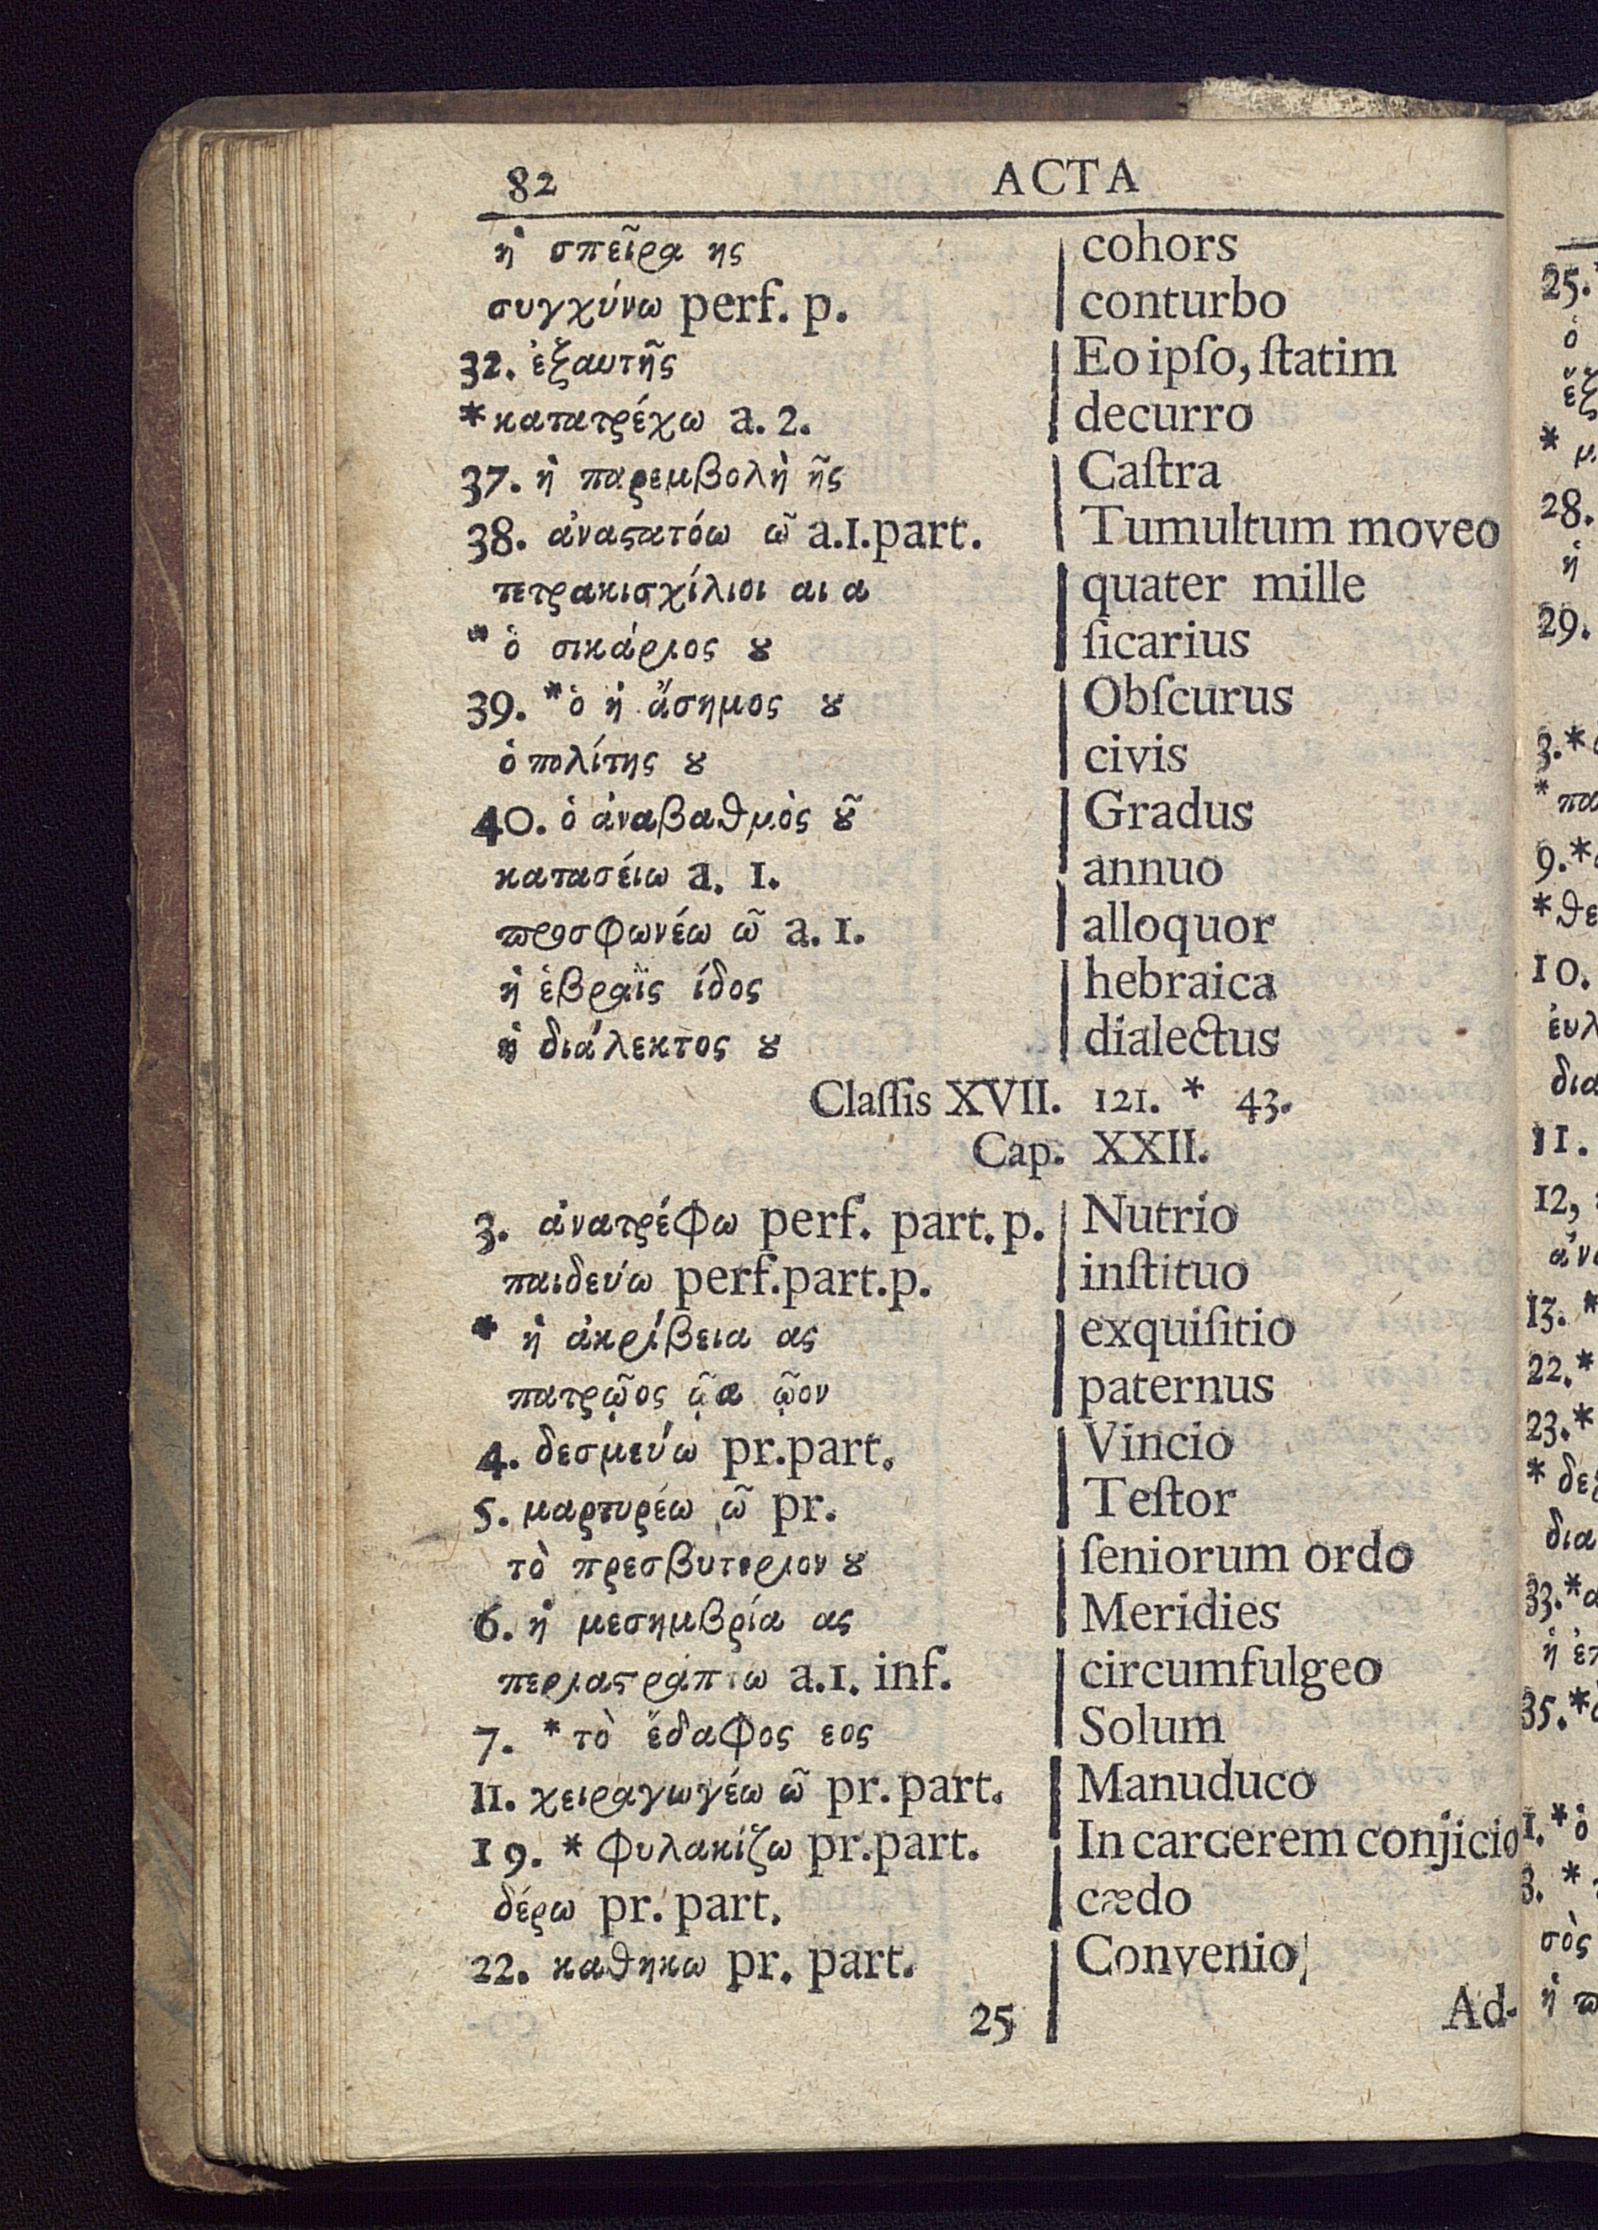 82 ACTA
ἡ σπεῖρα ης cohors
συγχύνω perf. p. conturbo
32. ἐξαυτῆς Eo ipſo, ſtatim
*κατατρέχω a. 2. decurro
37. ἡ παρεμβολὴ ῆς Caſtra
38. ἀναϛατόω ῶ a.1.part. Tumultum moveo
τετρακισχίλιοι αι α quater mille
* ὁ σικάριος ȣ ſicarius
39. *ὁ ἡ ἄσημος ȣ Obſcurus
ὁ πολίτης ȣ civis
40. ὁ ἀναβαθμὸς ȣ͂ Gradus
κατασείω a. 1. annuo
προσφωνέω ῶ a. 1. alloquor
ἡ ἑβραῒς ίδος hebraica
ἡ διάλεκτος ȣ dialectus
Claſſis XVII. 121. * 43.
Cap. XXII.
3. ἀνατρέφω perf. part. p. Nutrio
παιδεύω perf.part.p. inſtituo
* ἡ ἀκρίβεια ας exquiſitio
πατρῷος ῴα ῷον paternus
4. δεσμεύω pr.part. Vincio
5. μαρτυρέω ῶ pr. Teſtor
τὸ πρεσβυτεριον ȣ ſeniorum ordo
6. ἡ μεσημβρία ας Meridies
περιαϛράπτω a.1. inf. circumfulgeo
7. * τὸ ἔδαφος εος Solum
11. χειραγωγέω ῶ pr. part. Manuduco
19. * φυλακίζω pr.part. In carcerem conjicio
δέρω pr. part. cædo
22. καθηκω pr. part. Convenio
25 Ad-
25.
ὁ
ἐξ
*
28.
ἡ
29.
3.*
* πα
9.*
*θε
10.
ἐυλ
δια
11.
12,
ἀνα
13. *
22.*
23.*
* δε
δια
33.*
ἡ ἐπ
35.*
1.*ὁ
3. *
σὸς
ἡ π